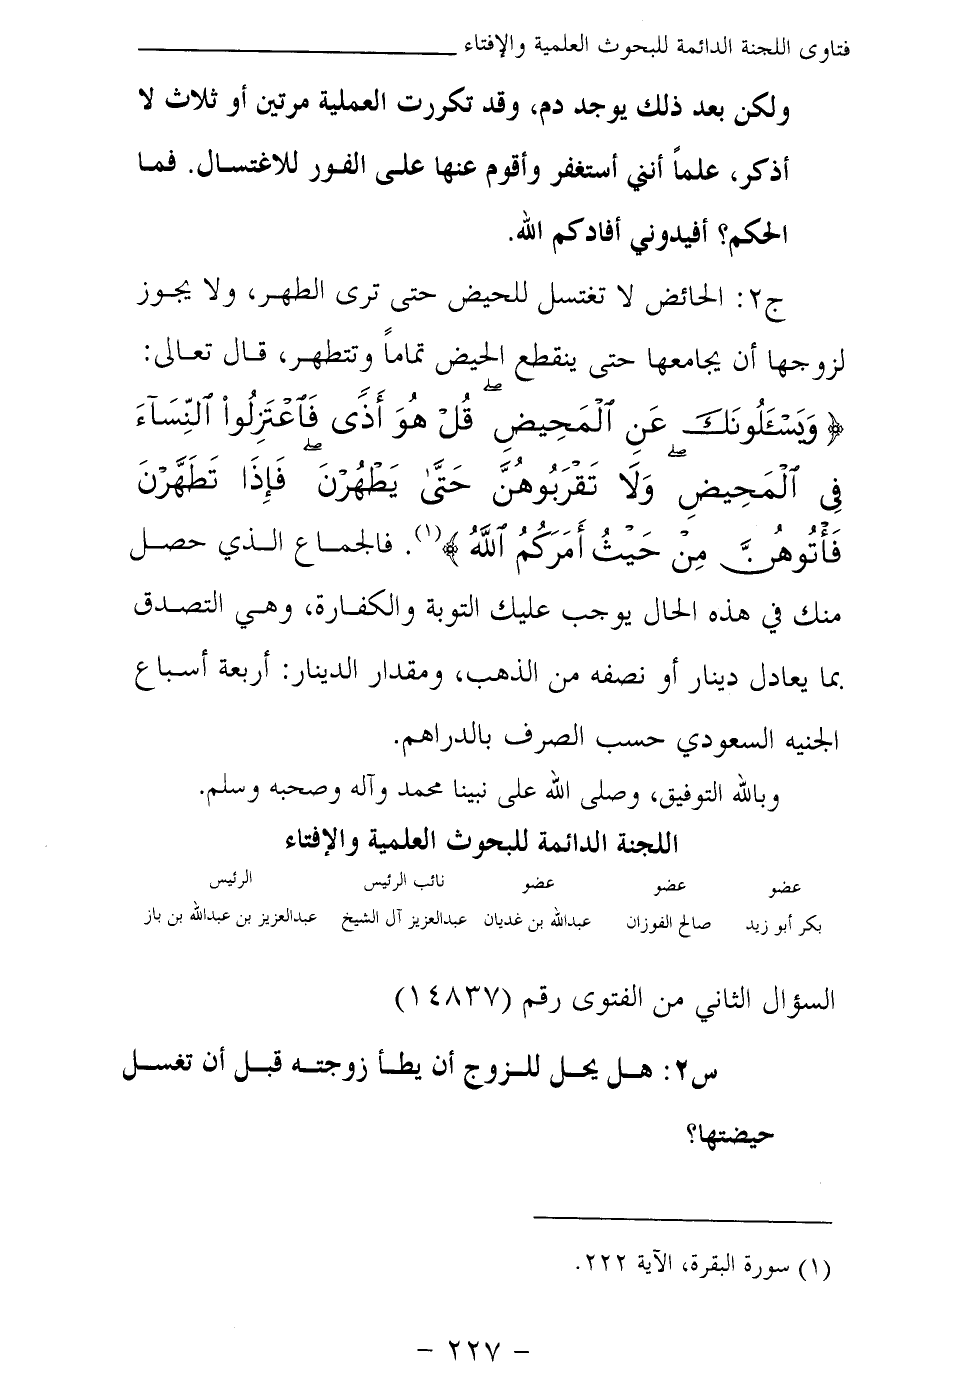 فتاوى اللجنة الدائمة للبحوث العلمية والإفتاء
ولكن بعد ذلك يوجد دم، وقد تكررت العملية مرتين أو ثلاث لا
أذكر، علماً أنني أستغفر وأقوم عنها على الفور للاغتسال. فما
الحكم؟ أفيدوني أفادكم الله.
ج٢: الحائض لا تغتسل للحيض حتى ترى الطهر، ولا يجوز
لزوجها أن يجامعها حتى ينقطع الحيض تماماً وتتطهر، قال تعالى:
﴿ وَيَسْـَٔلُونَكَ عَنِ ٱلْمَحِيضِ ۖ قُلْ هُوَ أَذًى فَٱعْتَزِلُوا۟ ٱلنِّسَآءَ
فِى ٱلْمَحِيضِ ۖ وَلَا تَقْرَبُوهُنَّ حَتَّىٰ يَطْهُرْنَ ۖ فَإِذَا تَطَهَّرْنَ
فَأْتُوهُنَّ مِنْ حَيْثُ أَمَرَكُمُ ٱللَّهُ ﴾(١). فالجماع الذي حصل
منك في هذه الحال يوجب عليك التوبة والكفارة، وهي التصدق
بما يعادل دينار أو نصفه من الذهب، ومقدار الدينار: أربعة أسباع
الجنيه السعودي حسب الصرف بالدراهم.
وبالله التوفيق، وصلى الله على نبينا محمد وآله وصحبه وسلم.
اللجنة الدائمة للبحوث العلمية والإفتاء
عضو عضو عضو نائب الرئيس الرئيس
بكر أبو زيد صالح الفوزان عبدالله بن غديان عبدالعزيز آل الشيخ عبدالعزيز بن عبدالله بن باز
السؤال الثاني من الفتوى رقم (١٤٨٣٧)
س٢: هل يحل للزوج أن يطأ زوجته قبل أن تغسل
حيضتها؟
(١) سورة البقرة، الآية ٢٢٢.
- ٢٢٧ -